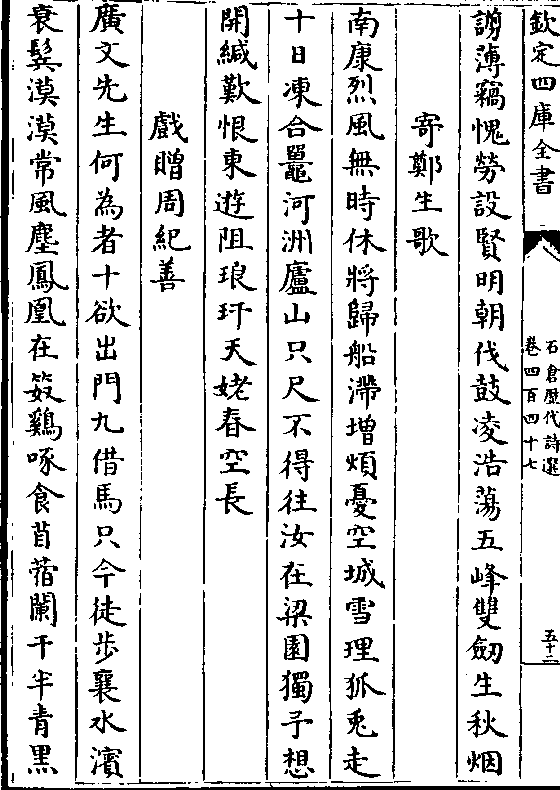 欽定四庫全書
石倉歷代詩選
卷四百四十七
五十二
謝薄竊愧勞設賢明朝伐鼓凌浩蕩五峰雙劒生秋烟
寄鄭生歌
南康烈風無時休將歸船滯增煩憂空城雪埋狐兎走
十日凍合鼉河洲廬山只尺不得往汝在梁園獨予想
開緘歎恨東遊阻琅玕天姥春空長
戲贈周紀善
廣文先生何為者十欲出門九借馬只今徒歩襄水濱
衰鬂漠漠常風塵鳳凰在笯鷄啄食苜蓿闌干半青黒